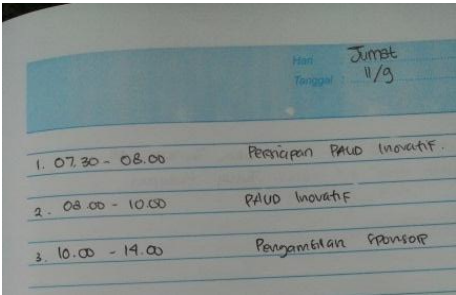 Hari Jumat
Tanggal : 11/9
1. 07.30 - 08.00 Persiapan PAUD Inovatif.
2. 08.00 - 10.00 PAUD Inovatif
3. 10.00 - 14.00 Pengambilan Sponsor